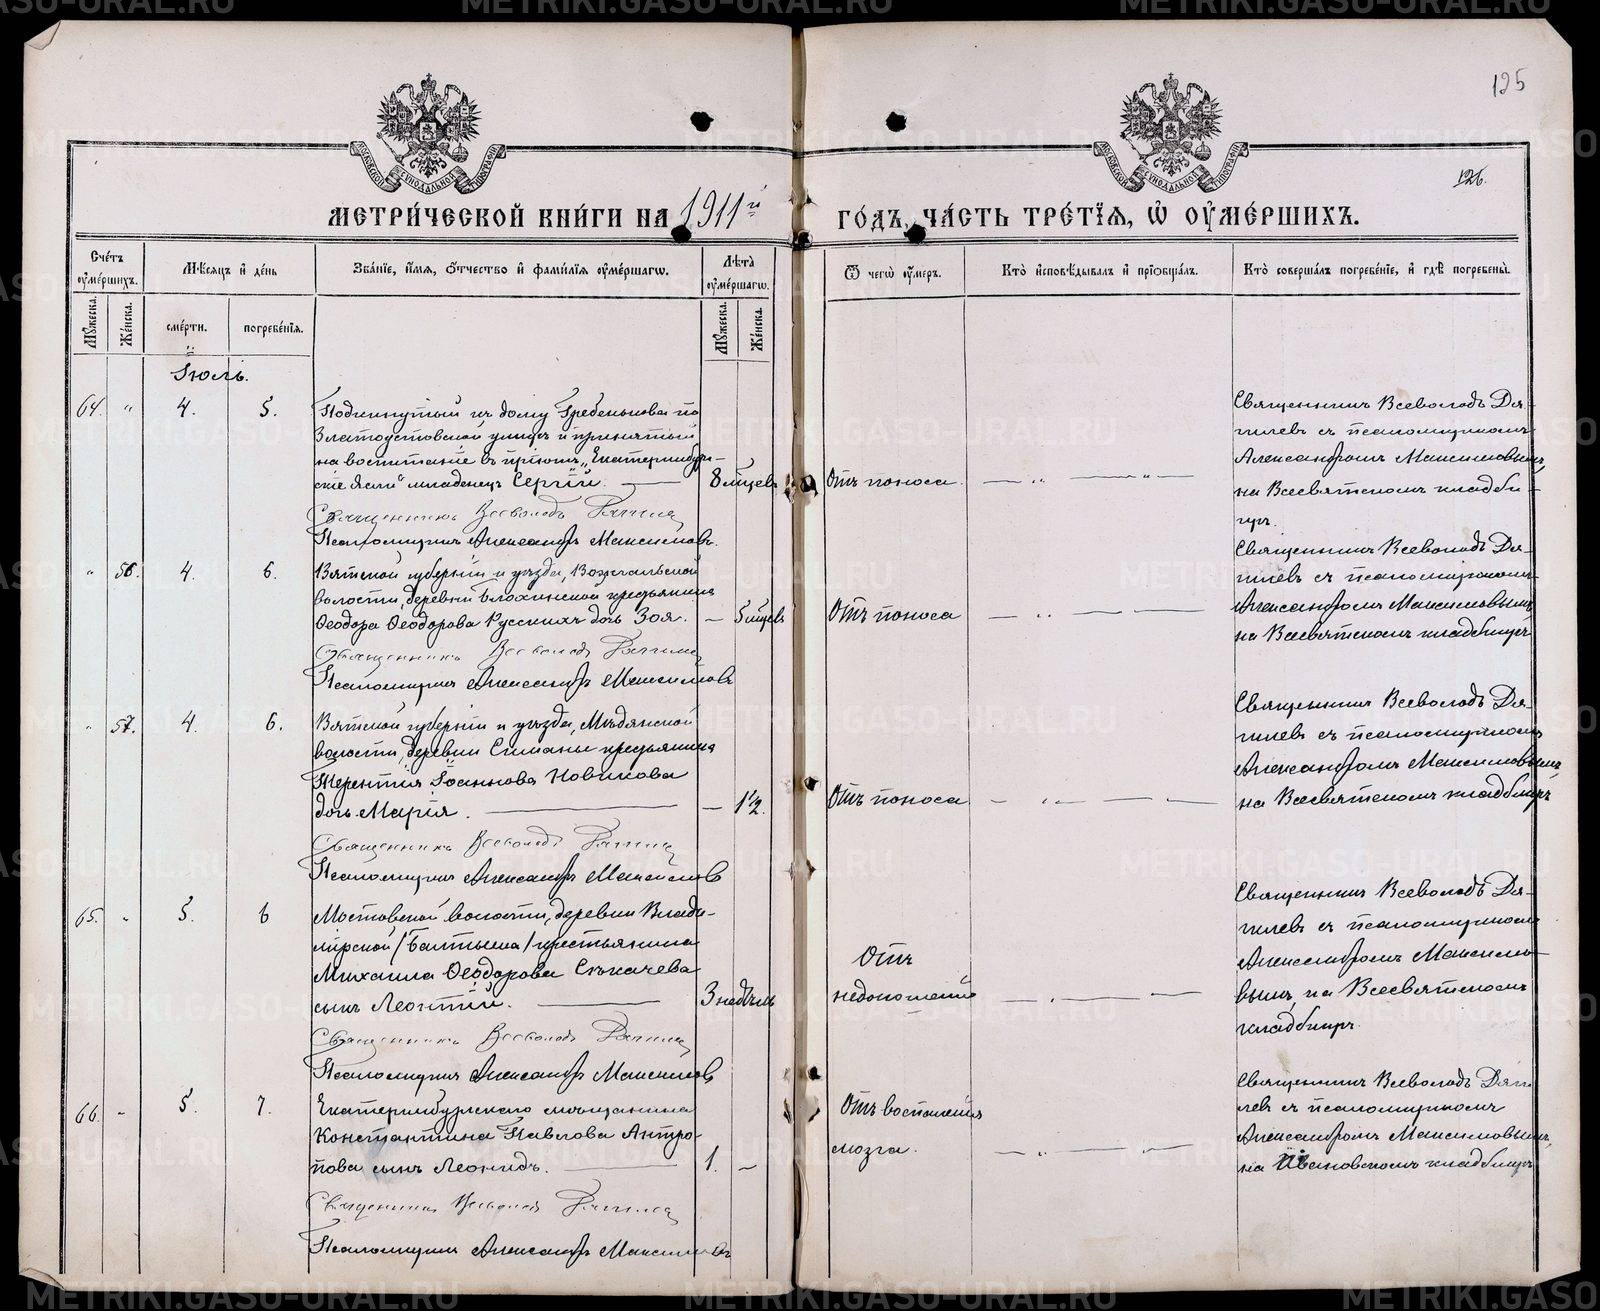 125
126.
МЕТРИ́ЧЕСКОЙ КНИ́ГИ НА 1911й ГО́ДЪ, ЧА́СТЬ ТРЕ́ТІѦ, Ѡ ОУМЕ́РШИХЪ.
Сче́тъ оумершихъ.
Мѣсяцъ и де́нь
Зва́ніе, и́мя, о́тчество и фами́лія оумершагѡ.
Лѣта оумершагѡ.
Ѿ чегѡ оумеръ.
Кто̀ исповѣдывалъ и пріобщалъ.
Кто̀ совершалъ погребе́ніе, и гдѣ погребены̀.
Мужеска.
Же́нска.
сме́рти.
погребе́нія.
Мужеска.
Же́нска.
Іюль.
64. " 4. 5.
Подкинутый къ дому Гребенькова по
Златоустовской улицѣ и принятый
на воспитаніе въ пріютъ „Екатеринбург-
скіе Ясли" младенецъ Сергій.
8 мѣсцевъ
Отъ поноса.
Священникъ Всеволодъ Дя-
гилевъ съ псаломщикомъ
Александромъ Максимовымъ
на Всесвятскомъ кладби-
щѣ.
Священникъ Всеволодъ Дягилев
Псаломщикъ Александръ Максимовъ.
" 56. 4. 6.
Вятской губерніи и уѣзда,
волости, деревни Блохинской крестьянина
Ѳеодора Ѳеодорова Русскихъ дочь Зоя.
— 5 мѣсцевъ
Отъ поноса
Священникъ Всеволодъ Дя-
гилевъ съ псаломщикомъ
Александромъ Максимовымъ
на Всесвятскомъ кладбищѣ
Священникъ Всеволодъ Дягилев
Псаломщикъ Александръ Максимовъ
" 57. 4. 6.
Вятской губерніи и уѣзда, Мѣдянской
волости, деревни Симаны крестьянина
Терентія Іоаннова Новикова
дочь Марія.
— 1½.
Отъ поноса
Священникъ Всеволодъ Дя-
гилевъ съ псаломщикомъ
Александромъ Максимовымъ
на Всесвятскомъ кладбищѣ
Священникъ Всеволодъ Дягилев
Псаломщикъ Александръ Максимов
65. " 5. 6
Мостовской волости, деревни Влади-
мірской /Балтыма/ крестьянина
Михаила Ѳеодорова Сѣкачева
сынъ Леонтій.
3 недѣль
Отъ
недоношенія
Священникъ Всеволодъ Дя-
гилевъ съ псаломщикомъ
Александромъ Максимо-
вымъ, на Всесвятскомъ
кладбищѣ.
Священникъ Всеволодъ Дягилев
Псаломщикъ Александръ Максимов
66. " 5. 7.
Екатеринбургскаго мѣщанина
Константина Павлова Антро-
пова сынъ Леонидъ.
1. —
Отъ воспаленія
мозга.
Священникъ Всеволодъ Дяги-
левъ съ псаломщикомъ
Александромъ Максимовымъ,
на Ивановскомъ кладбищѣ
Священникъ Всеволодъ Дягилев
Псаломщикъ Александръ Максимовъ